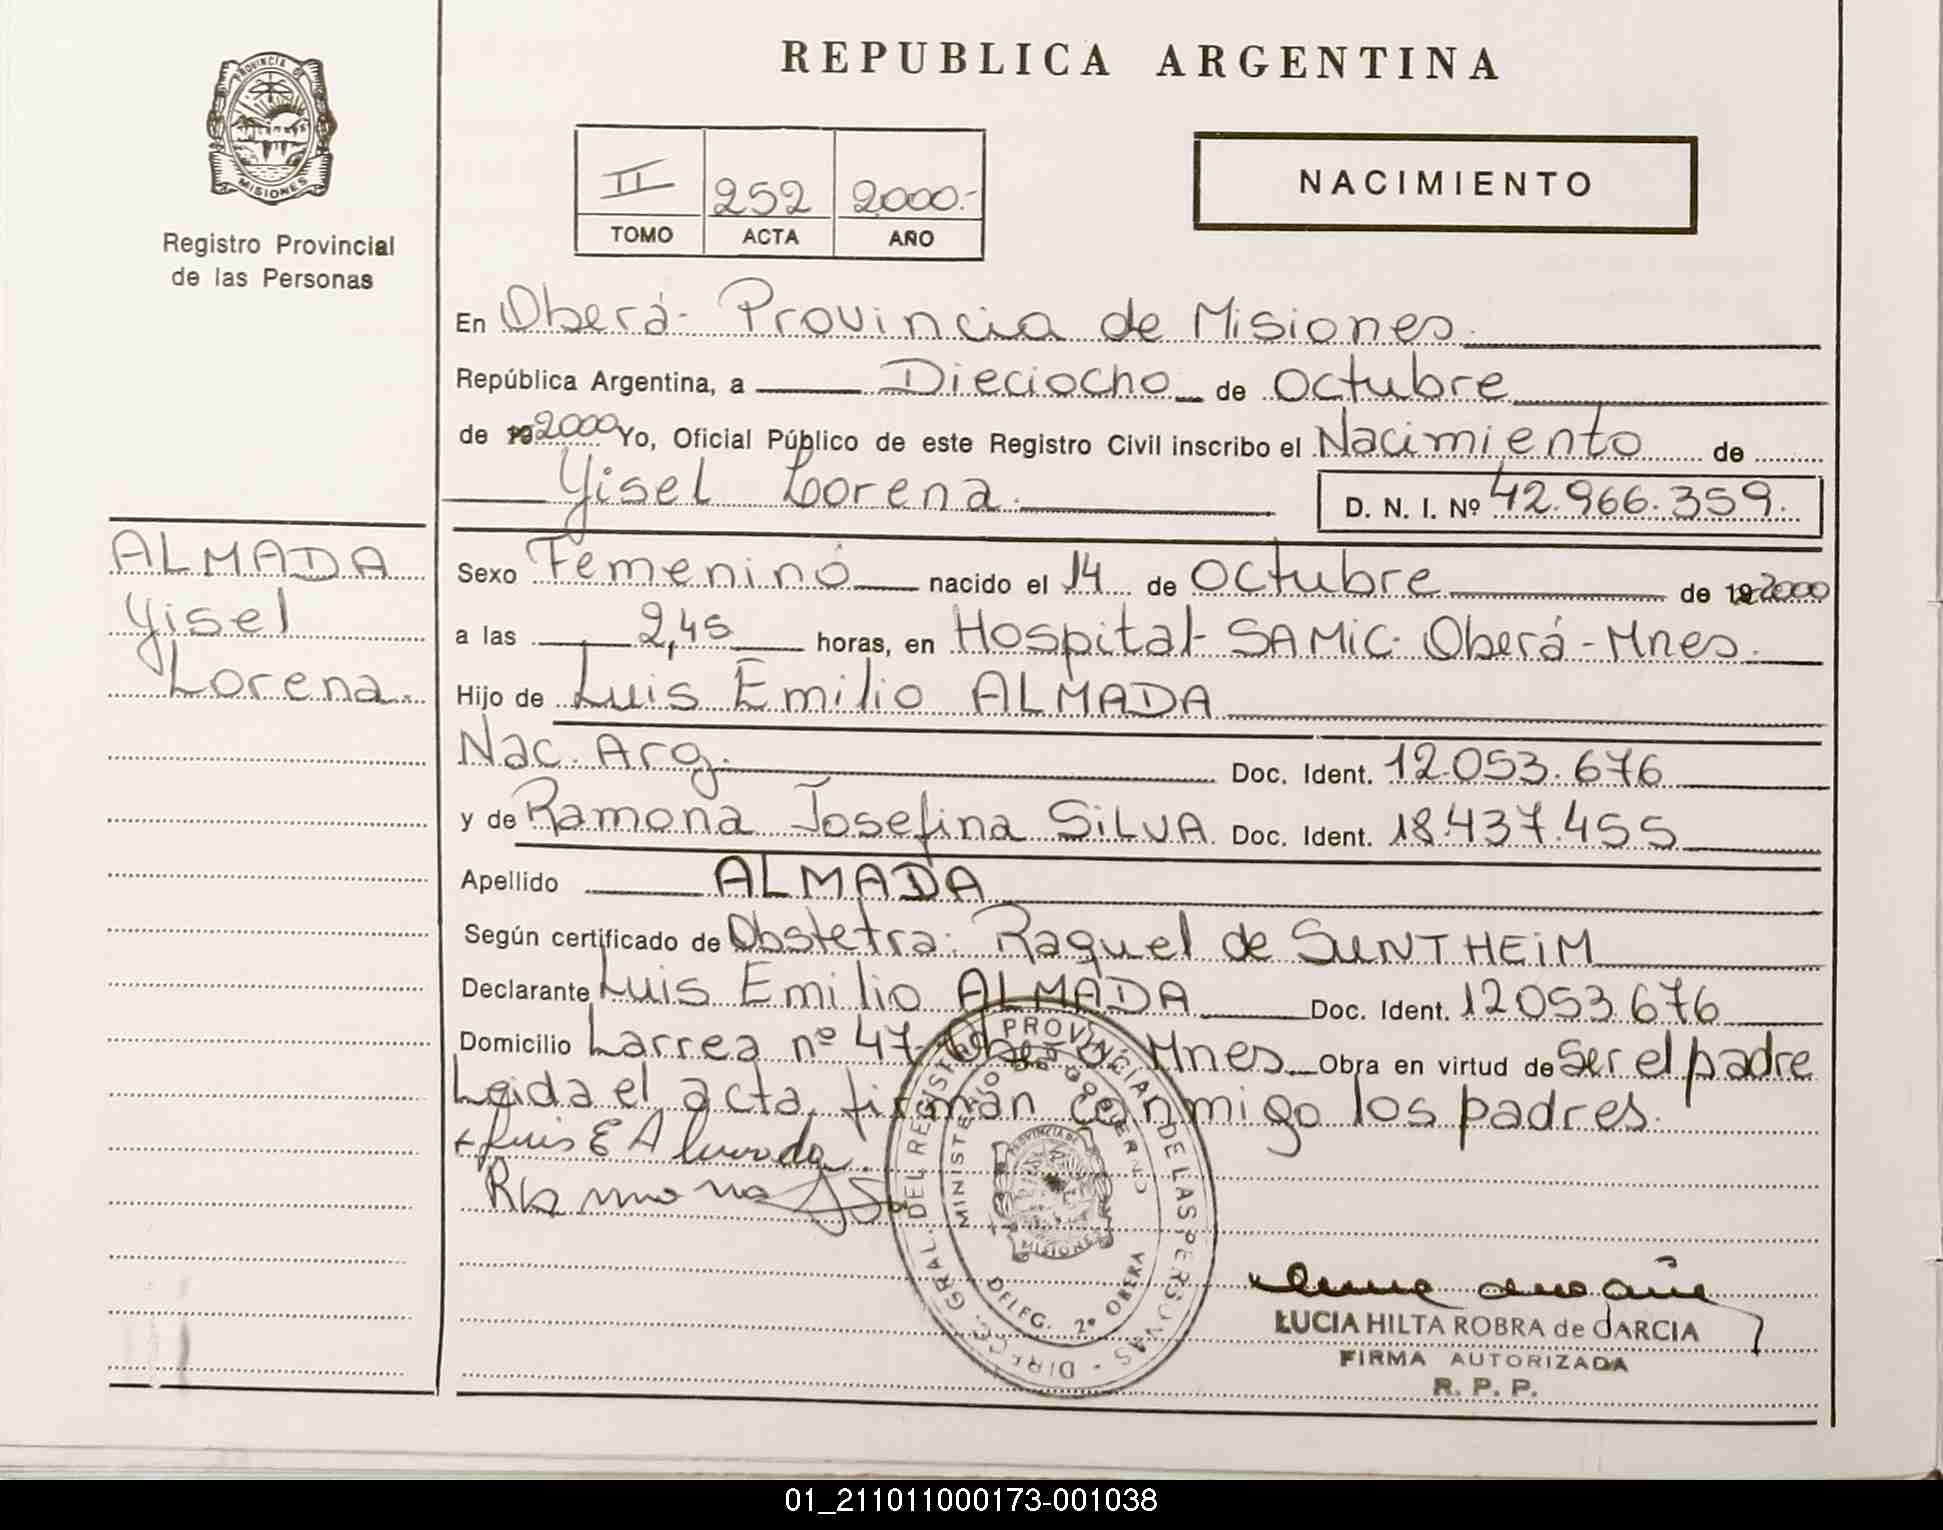 REPUBLICA ARGENTINA
PROVINCIA DE
MISIONES
Registro Provincial
de las Personas
II 252 2000.-
TOMO ACTA AÑO
NACIMIENTO
En Oberá- Provincia de Misiones.
República Argentina, a Dieciocho de Octubre
de 2000 Yo, Oficial Público de este Registro Civil inscribo el Nacimiento de
Yisel Lorena. D. N. I. Nº 42.966.359.
ALMADA
Yisel
Lorena.
Sexo Femenino nacido el 14 de Octubre de 2000
a las 2,45 horas, en Hospital- SAMiC- Oberá-Mnes.
Hijo de Luis Emilio ALMADA
Nac. Arg. Doc. Ident. 12.053.676
y de Ramona Josefina SiLVA Doc. Ident. 18.437.455
Apellido ALMADA
Según certificado de Obstetra: Raquel de SUNTHEiM
Declarante Luis Emilio ALMADA Doc. Ident. 12053.676
Domicilio Larrea nº 47- Oberá Mnes Obra en virtud de Ser el padre
Leida el acta, firman conmigo los padres.
Luis E Almada.
Ramona
DIRECC. GRAL. DEL REGISTRO PROVINCIAL DE LAS PERSONAS -
MINISTERIO DE GOBIERNO
PROVINCIA DE
MISIONES
DELEG. 2º OBERA
LUCIA HILTA ROBRA de GARCIA
FIRMA AUTORIZADA
R. P. P.
01_211011000173-001038